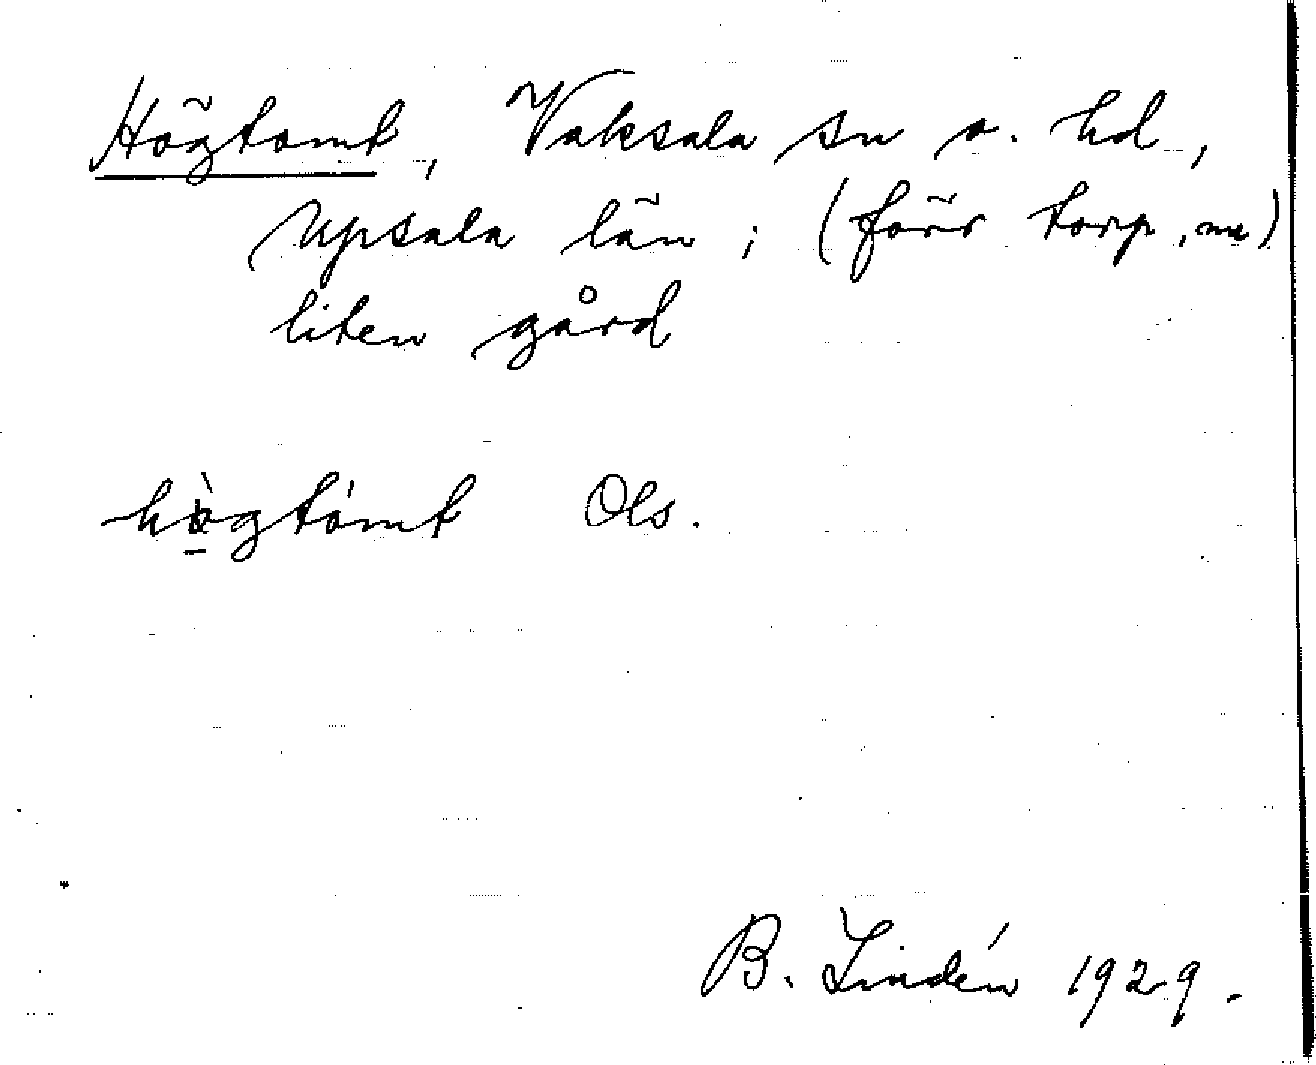 Högtomt, Vaksala sn o. hd,
Upsala län; (förr torp, nu)
liten gård
hògtómt Ols.
B. Lindén 1929.